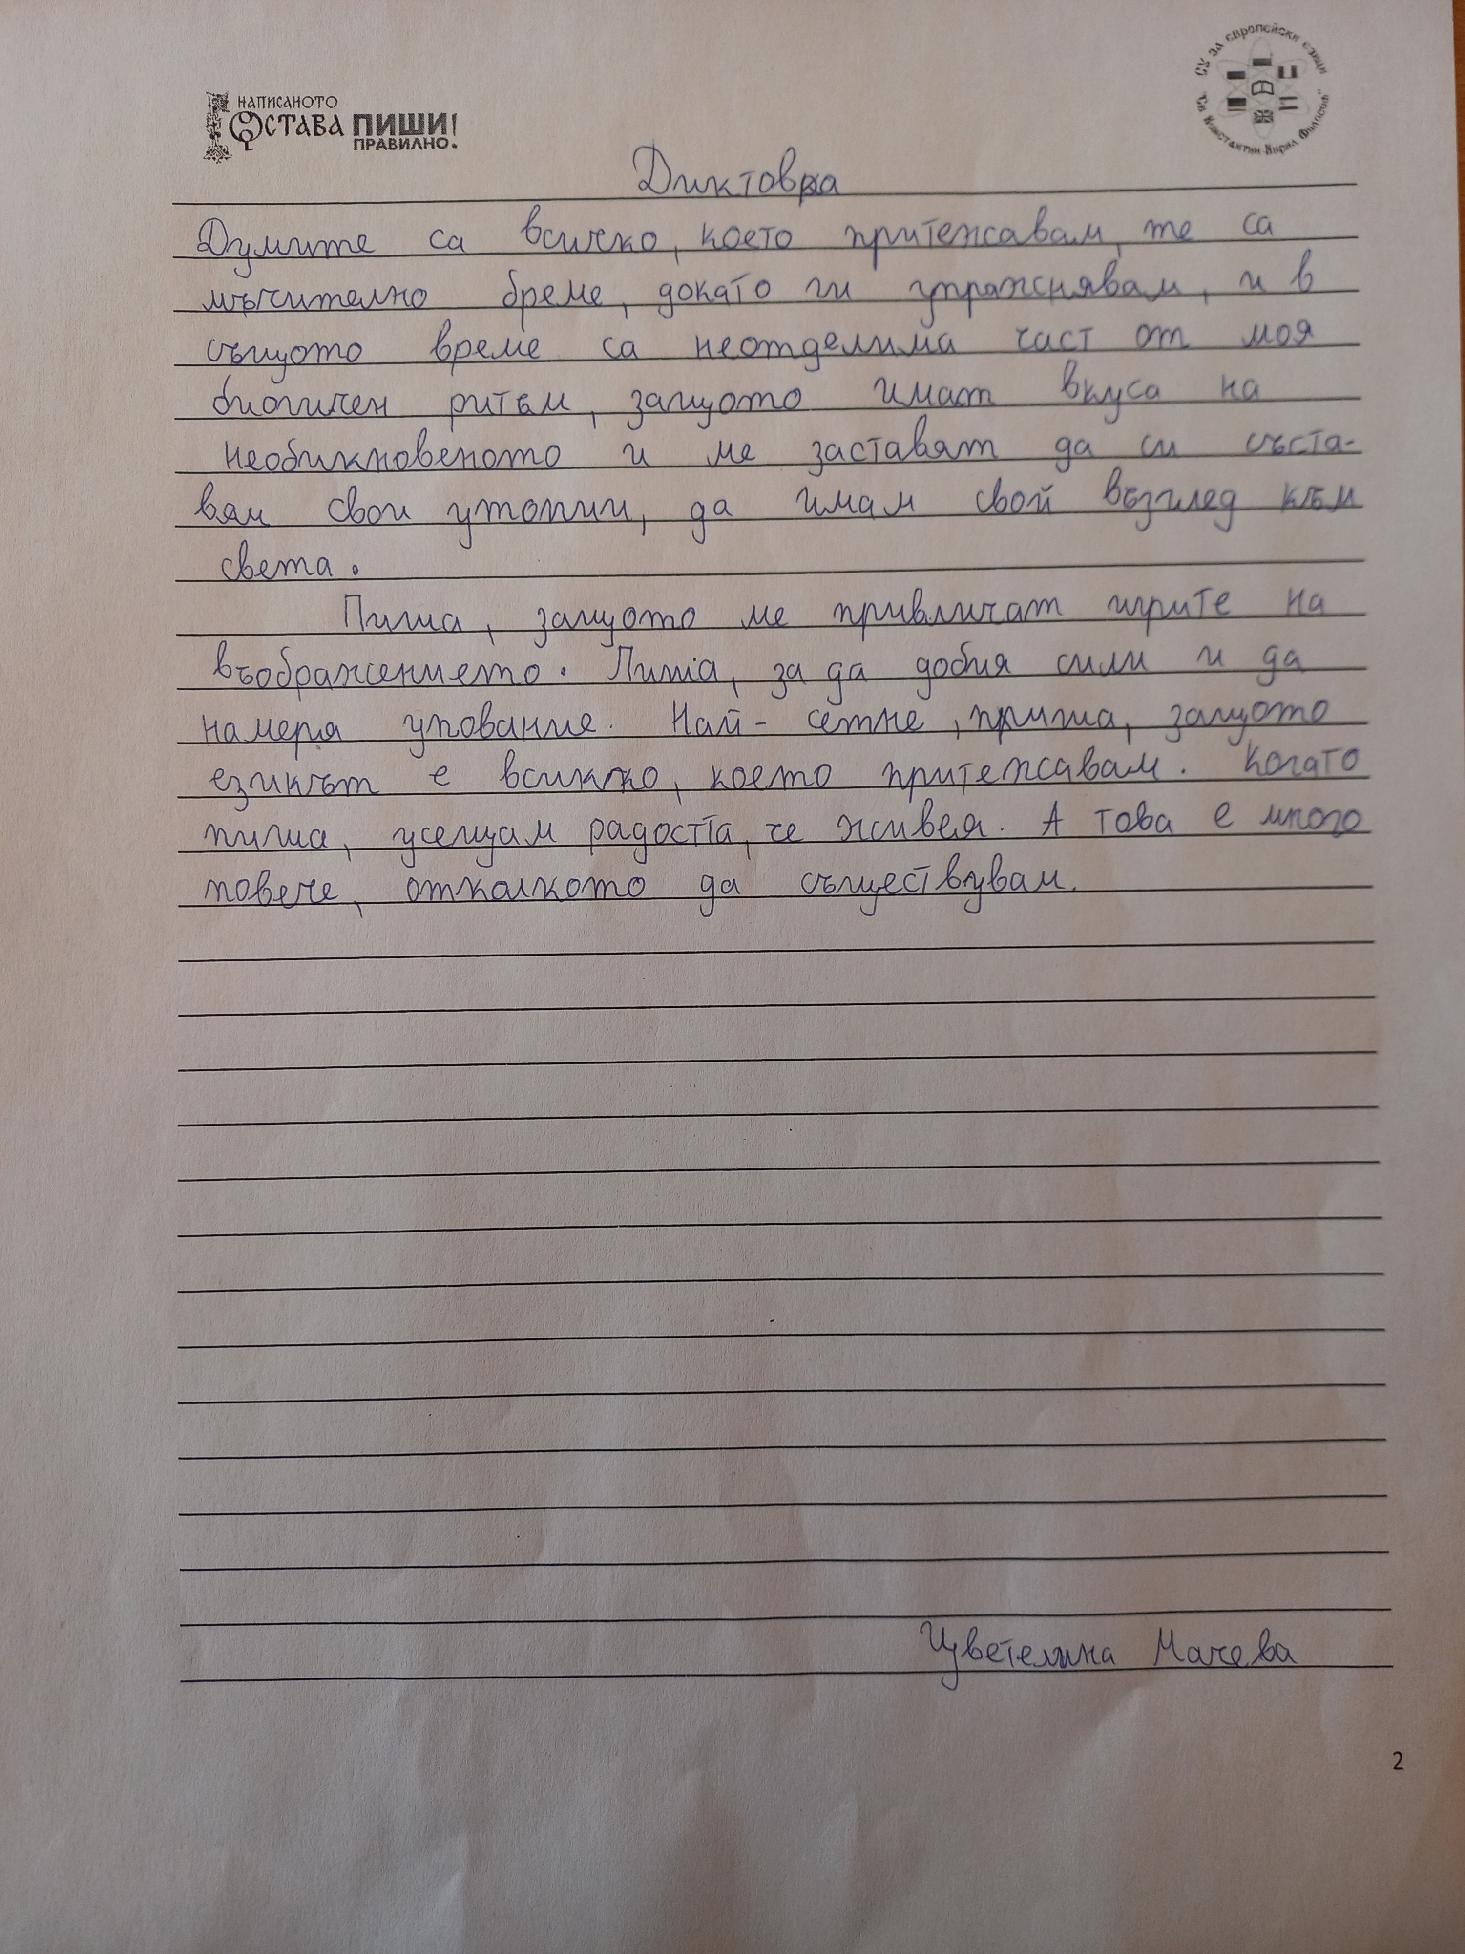 НАПИСАНОТО
ОСТАВА ПИШИ!
ПРАВИЛНО.
СУ за европейски езици
"Св. Константин-Кирил Философ"
Диктовка
Думите са всичко, което притежавам, те са
мъчително бреме, докато ги упражнявам, и в
същото време са неотделима част от моя
биогичен ритъм, защото имат вкуса на
необикновеното и ме заставят да си съста-
вям свои утопии, да имам свой възглед към
света.
Пиша, защото ме привличат игрите на
въображението. Пиша, за да добия сили и да
намеря упование. Най-сетне, пиша, защото
езикът е всичко, което притежавам. Когато
пиша, усещам радостта, че живея. А това е много
повече, отколкото да съществувам.
Цветелина Мачева
2